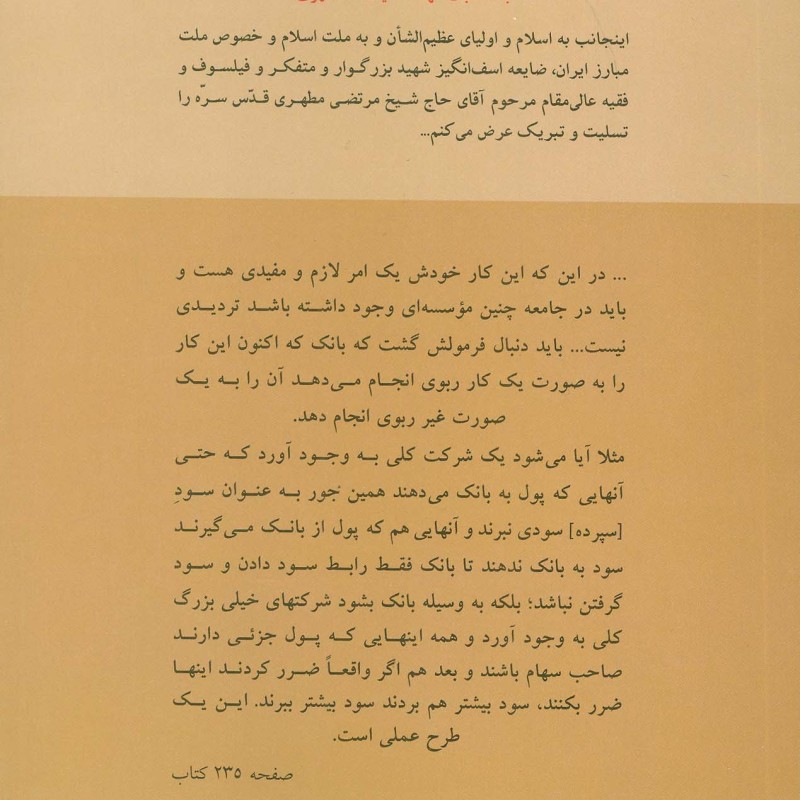 اینجانب به اسلام و اولیای عظیم‌الشأن و به ملت اسلام و خصوص ملت
مبارز ایران، ضایعه اسف‌انگیز شهید بزرگوار و متفکر و فیلسوف و
فقیه عالی‌مقام مرحوم آقای حاج شیخ مرتضی مطهری قدّس سرّه را
تسلیت و تبریک عرض می‌کنم...
... در این که این کار خودش یک امر لازم و مفیدی هست و
باید در جامعه چنین مؤسسه‌ای وجود داشته باشد تردیدی
نیست... باید دنبال فرمولش گشت که بانک که اکنون این کار
را به صورت یک کار ربوی انجام می‌دهد آن را به یک
صورت غیر ربوی انجام دهد.
مثلا آیا می‌شود یک شرکت کلی به وجود آورد که حتی
آنهایی که پول به بانک می‌دهند همین جور به عنوان سودِ
[سپرده] سودی نبرند و آنهایی هم که پول از بانک می‌گیرند
سود به بانک ندهند تا بانک فقط رابط سود دادن و سود
گرفتن نباشد؛ بلکه به وسیله بانک بشود شرکتهای خیلی بزرگ
کلی به وجود آورد و همه اینهایی که پول جزئی دارند
صاحب سهام باشند و بعد هم اگر واقعاً ضرر کردند اینها
ضرر بکنند، سود بیشتر هم بردند سود بیشتر ببرند. این یک
طرح عملی است.
صفحه ۲۳۵ کتاب